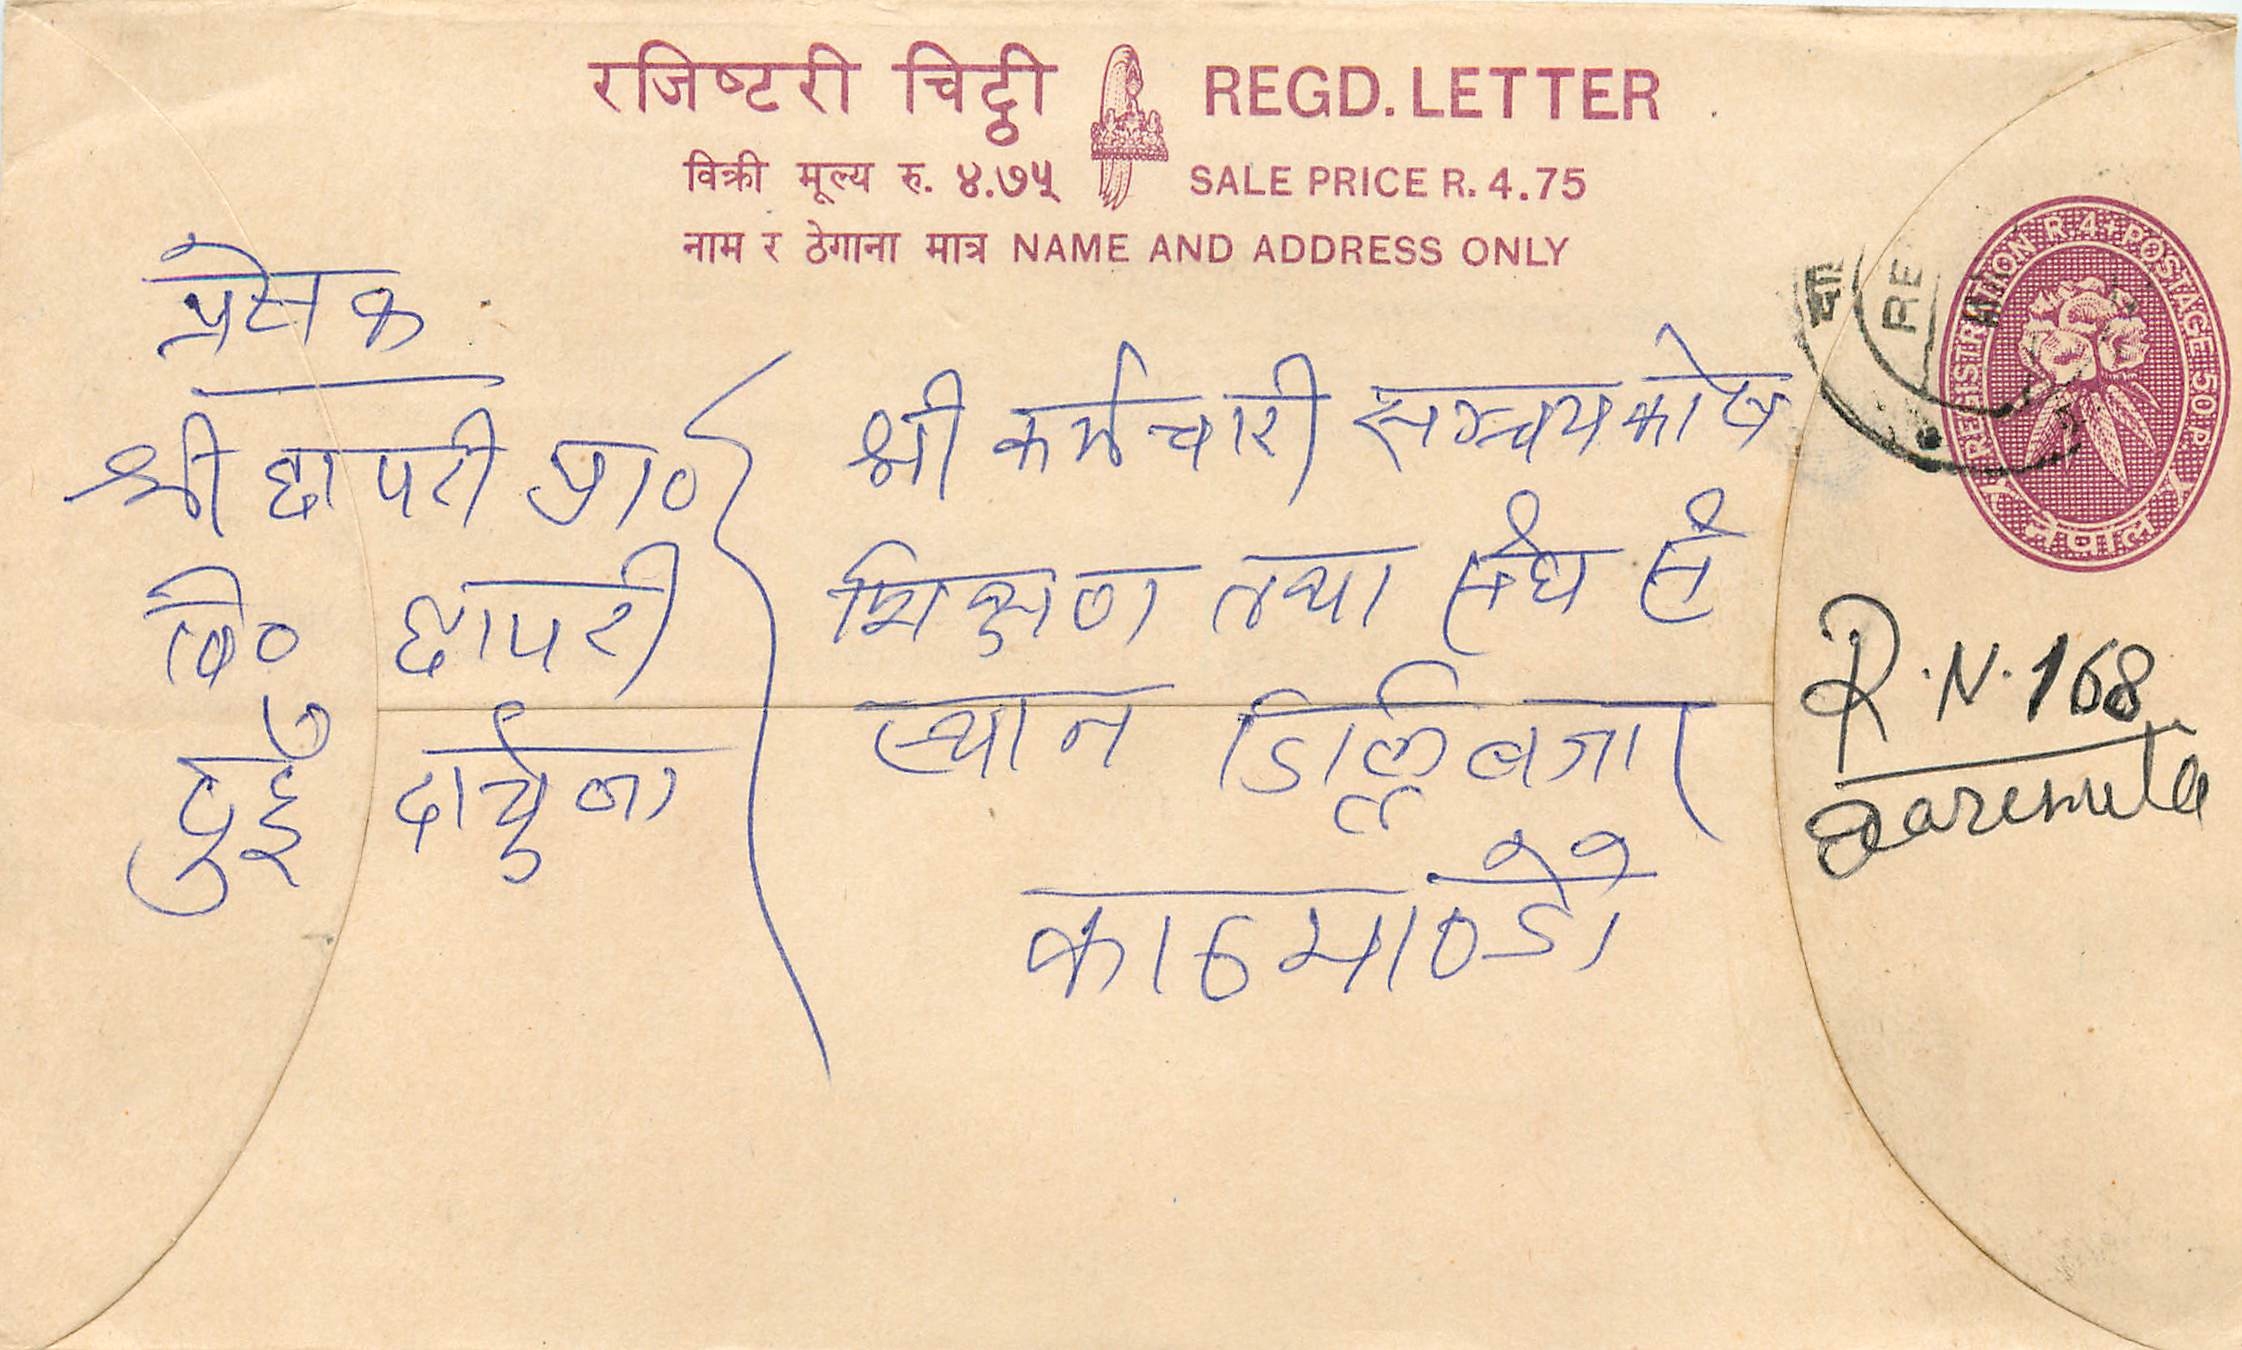 रजिष्टरी चिट्ठी REGD. LETTER
विक्री मूल्य रु. ४.७५ SALE PRICE R. 4.75
नाम र ठेगाना मात्र NAME AND ADDRESS ONLY
REGISTRATION R. 4 + POSTAGE 50 P.
नेपाल
RE
प्रेसक
श्री छापटी प्रा०
वि० छापटी
दुई
श्री कर्मचारी सञ्चयकोष
शिक्षण तथा संघ सं
स्थान डिल्लिबजार
काठमाण्डौ
R.N. 168